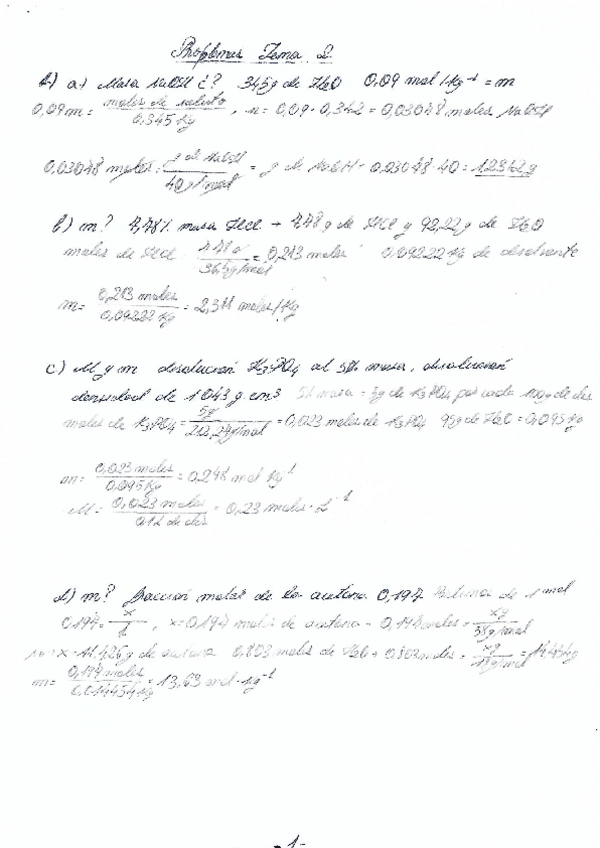 Problemas Tema 2
1) a) Masa NaOH ¿? 345g de H2O 0,09 mol·Kg⁻¹ = m
0,09 m = moles de soluto / 0,345 Kg , n = 0,09 · 0,342 = 0,03048 moles NaOH
0,03048 moles = g de NaOH / 40 g/mol = g de NaOH = 0,03048 · 40 = 1,2342 g
b) m? 7,78% masa HCl → 7,78 g de HCl y 92,22 g de H2O
moles de HCl = 7,78 g / 36,5 g/mol = 0,213 moles 0,09222 Kg de disolvente
m = 0,213 moles / 0,09222 Kg = 2,311 moles/Kg
c) M y m disolución K3PO4 al 5% masa, disolución
densidad de 1043 g cm³ 5% masa = 5g de K3PO4 por cada 100g de dis
moles de K3PO4 = 5g / 212,27 g/mol = 0,023 moles de K3PO4 95g de H2O = 0,095 Kg
m = 0,023 moles / 0,095 Kg = 0,248 mol Kg⁻¹
M = 0,023 moles / 0,1 L de dis = 0,23 moles · L⁻¹
d) m? Fracción molar de la acetona 0,197 de 1 mol
0,197 = x / 1 , x = 0,197 moles de acetona = 0,197 moles = xg / 58 g/mol
x = 11,426 g de acetona 0,803 moles de H2O = 0,803 moles = xg / 18 g/mol = 14,454 g
m = 0,197 moles / 0,014454 Kg = 13,63 mol · Kg⁻¹
- 1 -